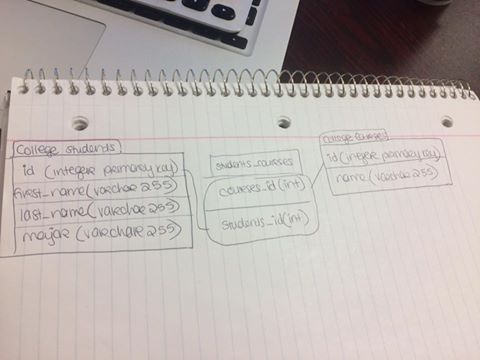 College students
id (integer primary key)
first_name (varchar 255)
last_name (varchar 255)
major (varchar 255)
students_courses
courses_id (int)
students_id (int)
College Courses
id (integer primary key)
name (varchar 255)